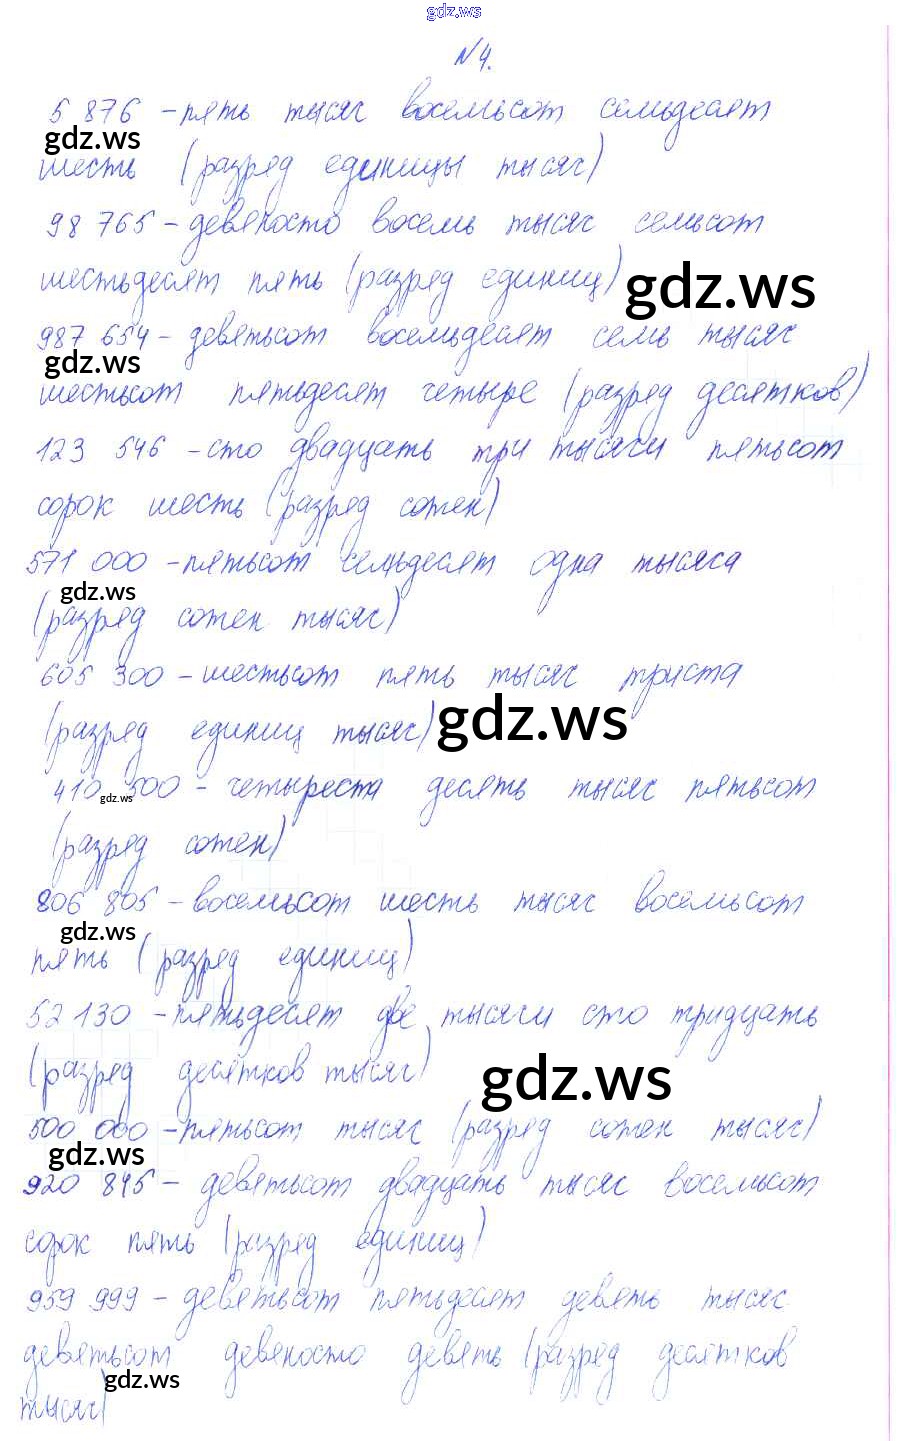 gdz.ws
№4.
5 876 – пять тысяч восемьсот семьдесят
gdz.ws
шесть (разряд единицы тысяч)
98 765 – девяносто восемь тысяч семьсот
шестьдесят пять (разряд единиц) gdz.ws
987 654 – девятьсот восемьдесят семь тысяч
gdz.ws
шестьсот пятьдесят четыре (разряд десятков)
123 546 – сто двадцать три тысячи пятьсот
сорок шесть (разряд сотен)
571 000 – пятьсот семьдесят одна тысяча
gdz.ws
(разряд сотен тысяч)
605 300 – шестьсот пять тысяч триста
(разряд единиц тысяч) gdz.ws
410 500 – четыреста десять тысяч пятьсот
gdz.ws
(разряд сотен)
806 805 – восемьсот шесть тысяч восемьсот
gdz.ws
пять (разряд единиц)
52 130 – пятьдесят две тысячи сто тридцать
(разряд десятков тысяч) gdz.ws
500 000 – пятьсот тысяч (разряд сотен тысяч)
gdz.ws
920 845 – девятьсот двадцать тысяч восемьсот
сорок пять (разряд единиц)
959 999 – девятьсот пятьдесят девять тысяч
девятьсот девяносто девять (разряд десятков
gdz.ws
тысяч)